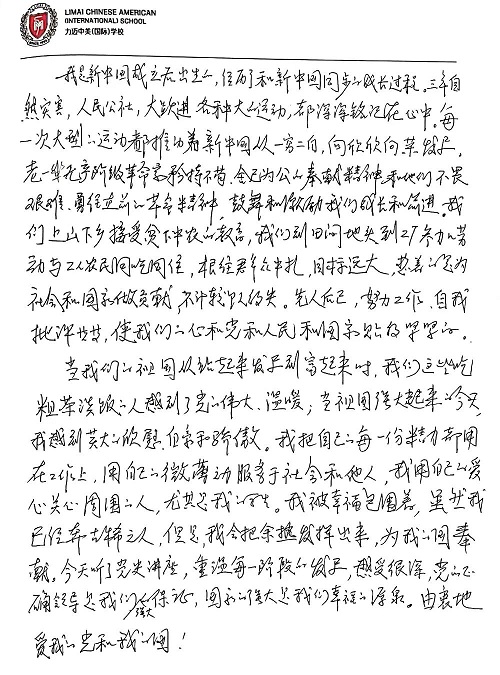 LIMAI CHINESE AMERICAN
(INTERNATIONAL) SCHOOL
力迈中美(国际)学校
我是新中国成立后出生人，经历了和新中国同步的成长过程，三年自
然灾害，人民公社，大跃进各种大的运动，都深深铭记在心中。每
一次大型的运动都推动着新中国从一穷二白，向欣欣向荣发展，
老一辈无产阶级革命家矜持不苟、全心为公的奉献精神和他们不畏
艰难、勇往直前的革命精神，鼓舞和激励我们成长和前进。我
们上山下乡接受贫下中农的教育，我们到田间地头到工厂参加劳
动与工人农民同吃同住，根往群众中扎，目标远大，想着的是为
社会和国家做贡献，不计较个人得失。先人后己，努力工作、自我
批评，使我们的心和党和人民和国家贴得牢牢的。
当我们的祖国从站起来发展到富起来时，我们这些吃
粗茶淡饭的人感到了党的伟大、温暖；当祖国强大起来的今天，
我感到莫大的欣慰、自豪和骄傲。我把自己的每一份精力都用
在工作上，用自己的微薄力服务于社会和他人，我用自己的爱
心关心周围的人，尤其是我的学生。我被幸福包围着，虽然我
已经年古稀之人，但是我会把余热发挥出来，为我的国奉
献。今天听了党史讲座，重温每一阶段的发展，感受很深，党的正
确领导是我们强大的保证，国家的强大是我们幸福的源泉。由衷地
爱我的党和我的国！